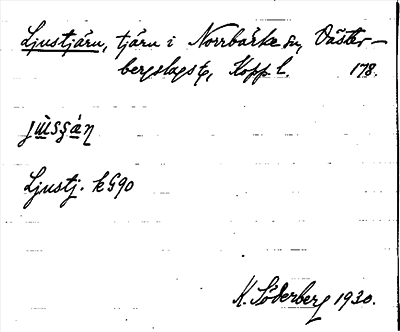 Ljustjärn, tjärn i Norrbärke sn, Väster-
bergslags tg, Kopp.l. 178.
Ljustj. k 590
K. Söderberg 1930.